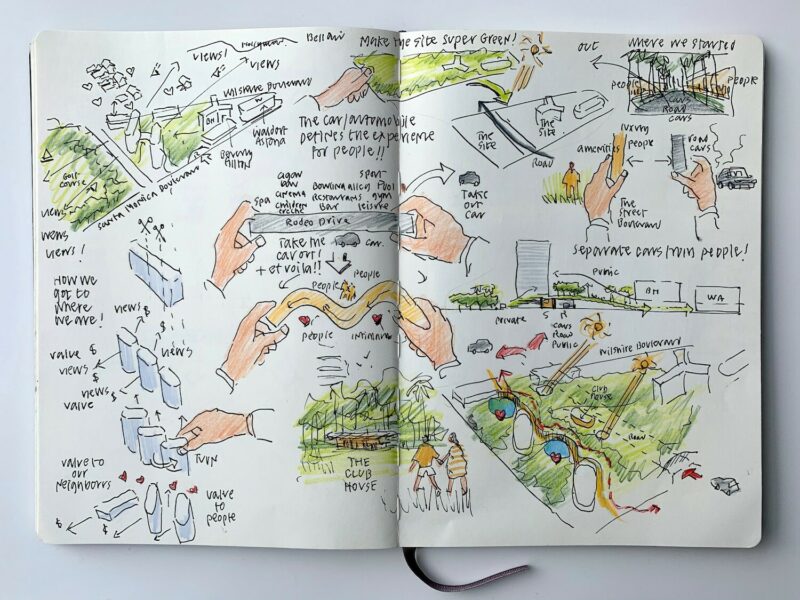 VIEWS!
VIEWS
WILSHIRE BOULEVARD
WALDORF
ASTORIA
GOLF
COURSE
SANTA MONICA BOULEVARD
VIEWS
VIEWS
VIEWS!
HOW WE
GOT TO
WHERE
WE ARE!
VIEWS $
VALUE $
VIEWS
VIEWS
$
VIEWS
VALUE
TURN
VALUE TO
OUR
NEIGHBORS
VALUE
TO
PEOPLE
$
$
BEL AIR
MAKE THE SITE SUPER GREEN!
THE CAR/AUTOMOBILE
DEFINES THE EXPERIENCE
FOR PEOPLE!!
SPA
CINEMA
CHILDREN
CRECHE
BOWLING ALLEY
RESTAURANTS
BAR
SPORT
POOL
GYM
LEISURE
RODEO DRIVE
TAKE THE CAR.
CAR OUT!
+ ET VOILA!!
PEOPLE
PEOPLE
PEOPLE
THE
CLUB
HOUSE
TAKE
OUT
CAR
THE
SITE
THE
SITE
ROAD
OUT
WHERE WE STARTED
PEOPLE
PEOPLE
CARS
ROAD
CARS
LUXURY
AMENITIES
PEOPLE
ROAD
CARS
THE
STREET
BOULEVARD
SEPARATE CARS FROM PEOPLE!
PUBLIC
BH
WA
PRIVATE
CARS
ROAD
PUBLIC
WILSHIRE BOULEVARD
CLUB
HOUSE